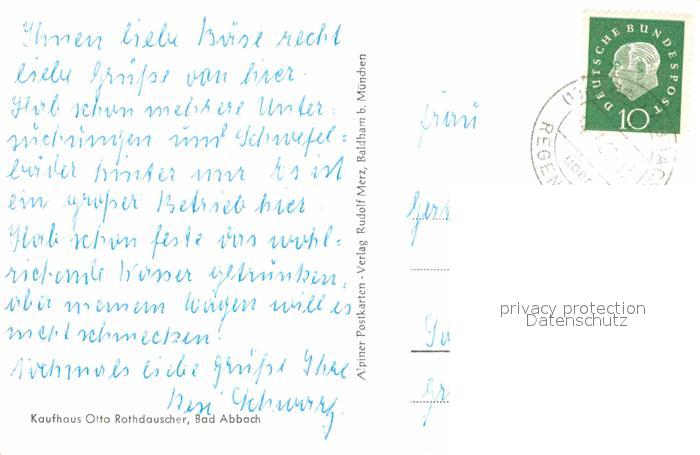 Ihnen liebe Böse recht
liebe Grüße von hier.
Hab schon mehrere Unter-
suchungen und Schwefel-
bäder hinter mir. Es ist
ein großer Betrieb hier.
Hab schon feste das wohl-
riechende Wasser getrunken,
aber meinem Magen will es
nicht schmecken!
Nochmals liebe Grüße Ihre
Schwarz.
Kaufhaus Otto Rothdauscher, Bad Abbach
Alpiner Postkarten-Verlag Rudolf Merz, Baldham b. München
DEUTSCHE BUNDESPOST
10
REGEN
über
Frau
privacy protection
Datenschutz